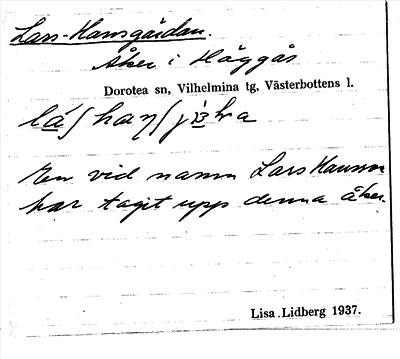 Lars-Hansgärdan.
Åker i Häggås
Dorotea sn, Vilhelmina tg, Västerbottens l.
En vid namn Lars Hansson
har tagit upp denna åker.
Lisa Lidberg 1937.